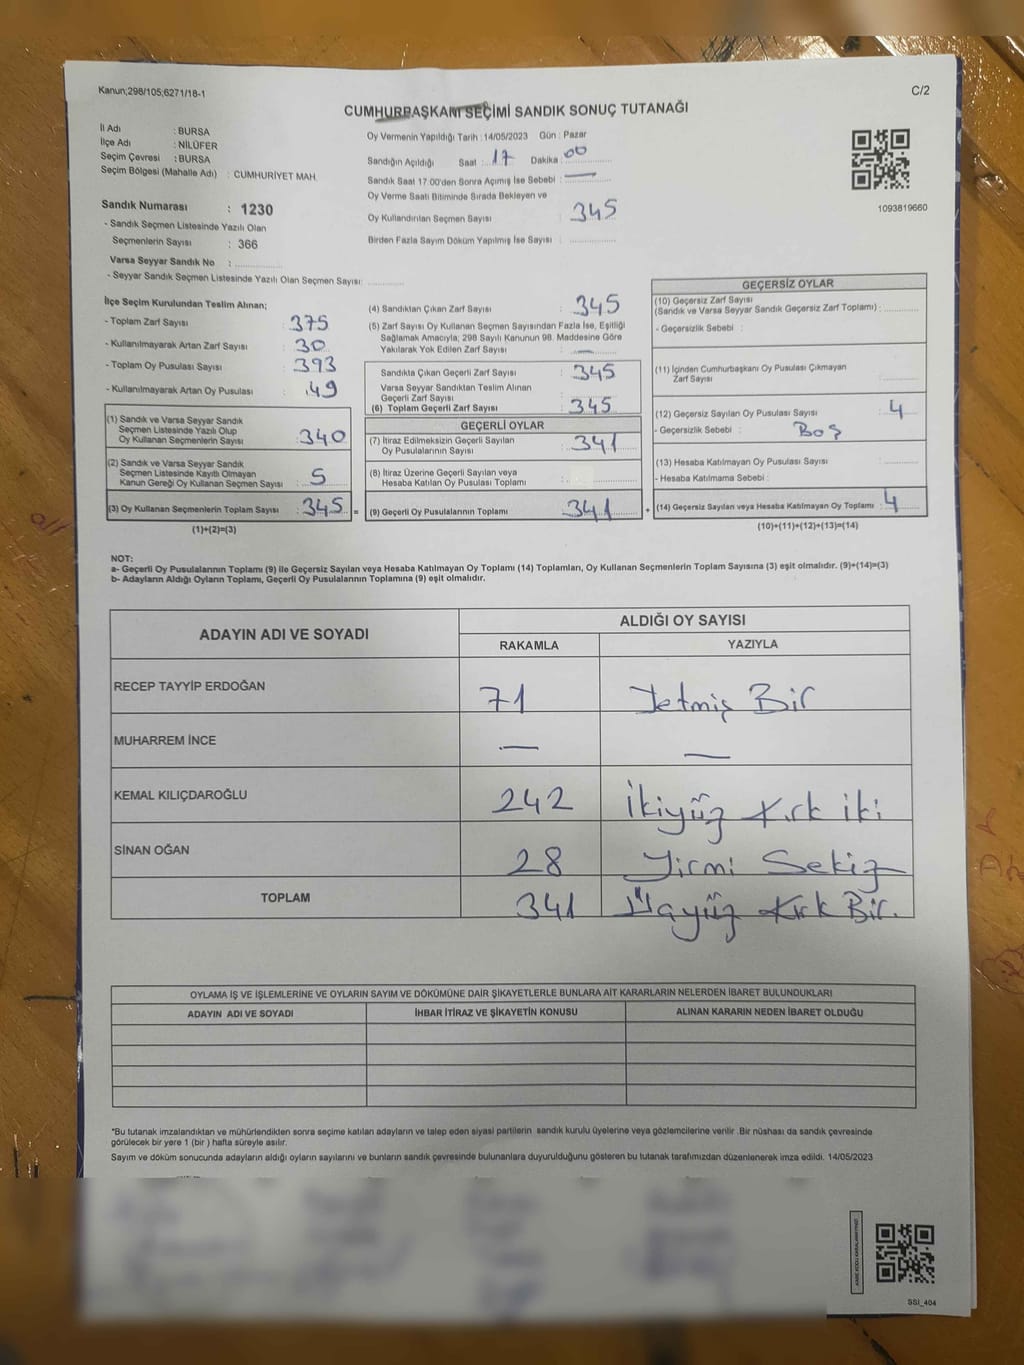 Kanun;298/105;6271/18-1
C/2
CUMHURBAŞKANI SEÇİMİ SANDIK SONUÇ TUTANAĞI
İl Adı : BURSA
İlçe Adı : NİLÜFER
Seçim Çevresi : BURSA
Seçim Bölgesi (Mahalle Adı) : CUMHURİYET MAH.
Sandık Numarası : 1230
- Sandık Seçmen Listesinde Yazılı Olan
Seçmenlerin Sayısı : 366
Varsa Seyyar Sandık No : ..............
- Seyyar Sandık Seçmen Listesinde Yazılı Olan Seçmen Sayısı: ..............
Oy Vermenin Yapıldığı Tarih : 14/05/2023 Gün : Pazar
Sandığın Açıldığı Saat : 17 Dakika : 00
Sandık Saat 17:00'den Sonra Açımış İse Sebebi : —
Oy Verme Saati Bitiminde Sırada Bekleyen ve
Oy Kullandırılan Seçmen Sayısı 345
Birden Fazla Sayım Döküm Yapılmış İse Sayısı : ..............
1093819660
İlçe Seçim Kurulundan Teslim Alınan;
- Toplam Zarf Sayısı : 375
- Kullanılmayarak Artan Zarf Sayısı : 30
- Toplam Oy Pusulası Sayısı : 393
- Kullanılmayarak Artan Oy Pusulası : 49
(1) Sandık ve Varsa Seyyar Sandık
Seçmen Listesinde Yazılı Olup
Oy Kullanan Seçmenlerin Sayısı : 340
(2) Sandık ve Varsa Seyyar Sandık
Seçmen Listesinde Kayıtlı Olmayan
Kanun Gereği Oy Kullanan Seçmen Sayısı : 5
(3) Oy Kullanan Seçmenlerin Toplam Sayısı : 345 =
(1)+(2)=(3)
(4) Sandıktan Çıkan Zarf Sayısı : 345
(5) Zarf Sayısı Oy Kullanan Seçmen Sayısından Fazla İse, Eşitliği
Sağlamak Amacıyla; 298 Sayılı Kanunun 98. Maddesine Göre
Yakılarak Yok Edilen Zarf Sayısı : —
Sandıkta Çıkan Geçerli Zarf Sayısı : 345
Varsa Seyyar Sandıktan Teslim Alınan
Geçerli Zarf Sayısı : ..............
(6) Toplam Geçerli Zarf Sayısı : 345
GEÇERLİ OYLAR
(7) İtiraz Edilmeksizin Geçerli Sayılan
Oy Pusulalarının Sayısı : 341
(8) İtiraz Üzerine Geçerli Sayılan veya
Hesaba Katılan Oy Pusulası Toplamı : ..............
(9) Geçerli Oy Pusulalarının Toplamı : 341 +
GEÇERSİZ OYLAR
(10) Geçersiz Zarf Sayısı
(Sandık ve Varsa Seyyar Sandık Geçersiz Zarf Toplamı) : ..............
- Geçersizlik Sebebi :
(11) İçinden Cumhurbaşkanı Oy Pusulası Çıkmayan
Zarf Sayısı : ..............
(12) Geçersiz Sayılan Oy Pusulası Sayısı : 4
- Geçersizlik Sebebi : Boş
(13) Hesaba Katılmayan Oy Pusulası Sayısı : ..............
- Hesaba Katılmama Sebebi :
(14) Geçersiz Sayılan veya Hesaba Katılmayan Oy Toplamı : 4
(10)+(11)+(12)+(13)=(14)
NOT:
a- Geçerli Oy Pusulalarının Toplamı (9) ile Geçersiz Sayılan veya Hesaba Katılmayan Oy Toplamı (14) Toplamları, Oy Kullanan Seçmenlerin Toplam Sayısına (3) eşit olmalıdır. (9)+(14)=(3)
b- Adayların Aldığı Oyların Toplamı, Geçerli Oy Pusulalarının Toplamına (9) eşit olmalıdır.
ADAYIN ADI VE SOYADI
ALDIĞI OY SAYISI
RAKAMLA YAZIYLA
RECEP TAYYİP ERDOĞAN 71 Yetmiş Bir
MUHARREM İNCE — —
KEMAL KILIÇDAROĞLU 242 İkiyüz Kırk iki
SİNAN OĞAN 28 Yirmi Sekiz
TOPLAM 341 Üçyüz Kırk Bir.
OYLAMA İŞ VE İŞLEMLERİNE VE OYLARIN SAYIM VE DÖKÜMÜNE DAİR ŞİKAYETLERLE BUNLARA AİT KARARLARIN NELERDEN İBARET BULUNDUKLARI
ADAYIN ADI VE SOYADI İHBAR İTİRAZ VE ŞİKAYETİN KONUSU ALINAN KARARIN NEDEN İBARET OLDUĞU
*Bu tutanak imzalandıktan ve mühürlendikten sonra seçime katılan adayların ve talep eden siyasi partilerin sandık kurulu üyelerine veya gözlemcilerine verilir .Bir nüshası da sandık çevresinde
görülecek bir yere 1 (bir ) hafta süreyle asılır.
Sayım ve döküm sonucunda adayların aldığı oyların sayılarını ve bunların sandık çevresinde bulunanlara duyurulduğunu gösteren bu tutanak tarafımızdan düzenlenerek imza edildi. 14/05/2023
SSI_404